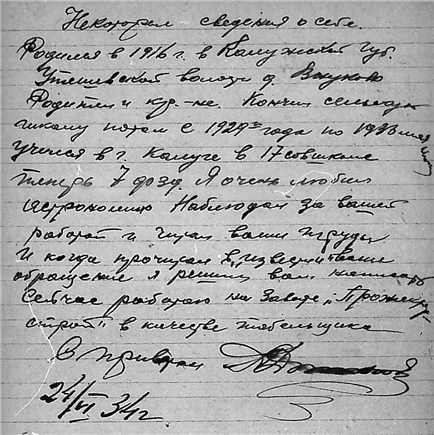 Некоторые сведения о себе.
Родился в 1916 г. в Калужской губ.
волости д. Внуково
Родители кр-не. Кончил сельскую
школу потом с 1929го года по 1933
учился в г. Калуге в 17 сов школе
теперь 7 Я очень любил
астрономию Наблюдал за вашей
работой и читал ваши труды
И когда прочитал в „известии" ваше
обращение я решил вам написать
Сейчас работаю на Заводе „Прожектор
строй" в качестве табельщика
С приветом
24/VI 34 г.